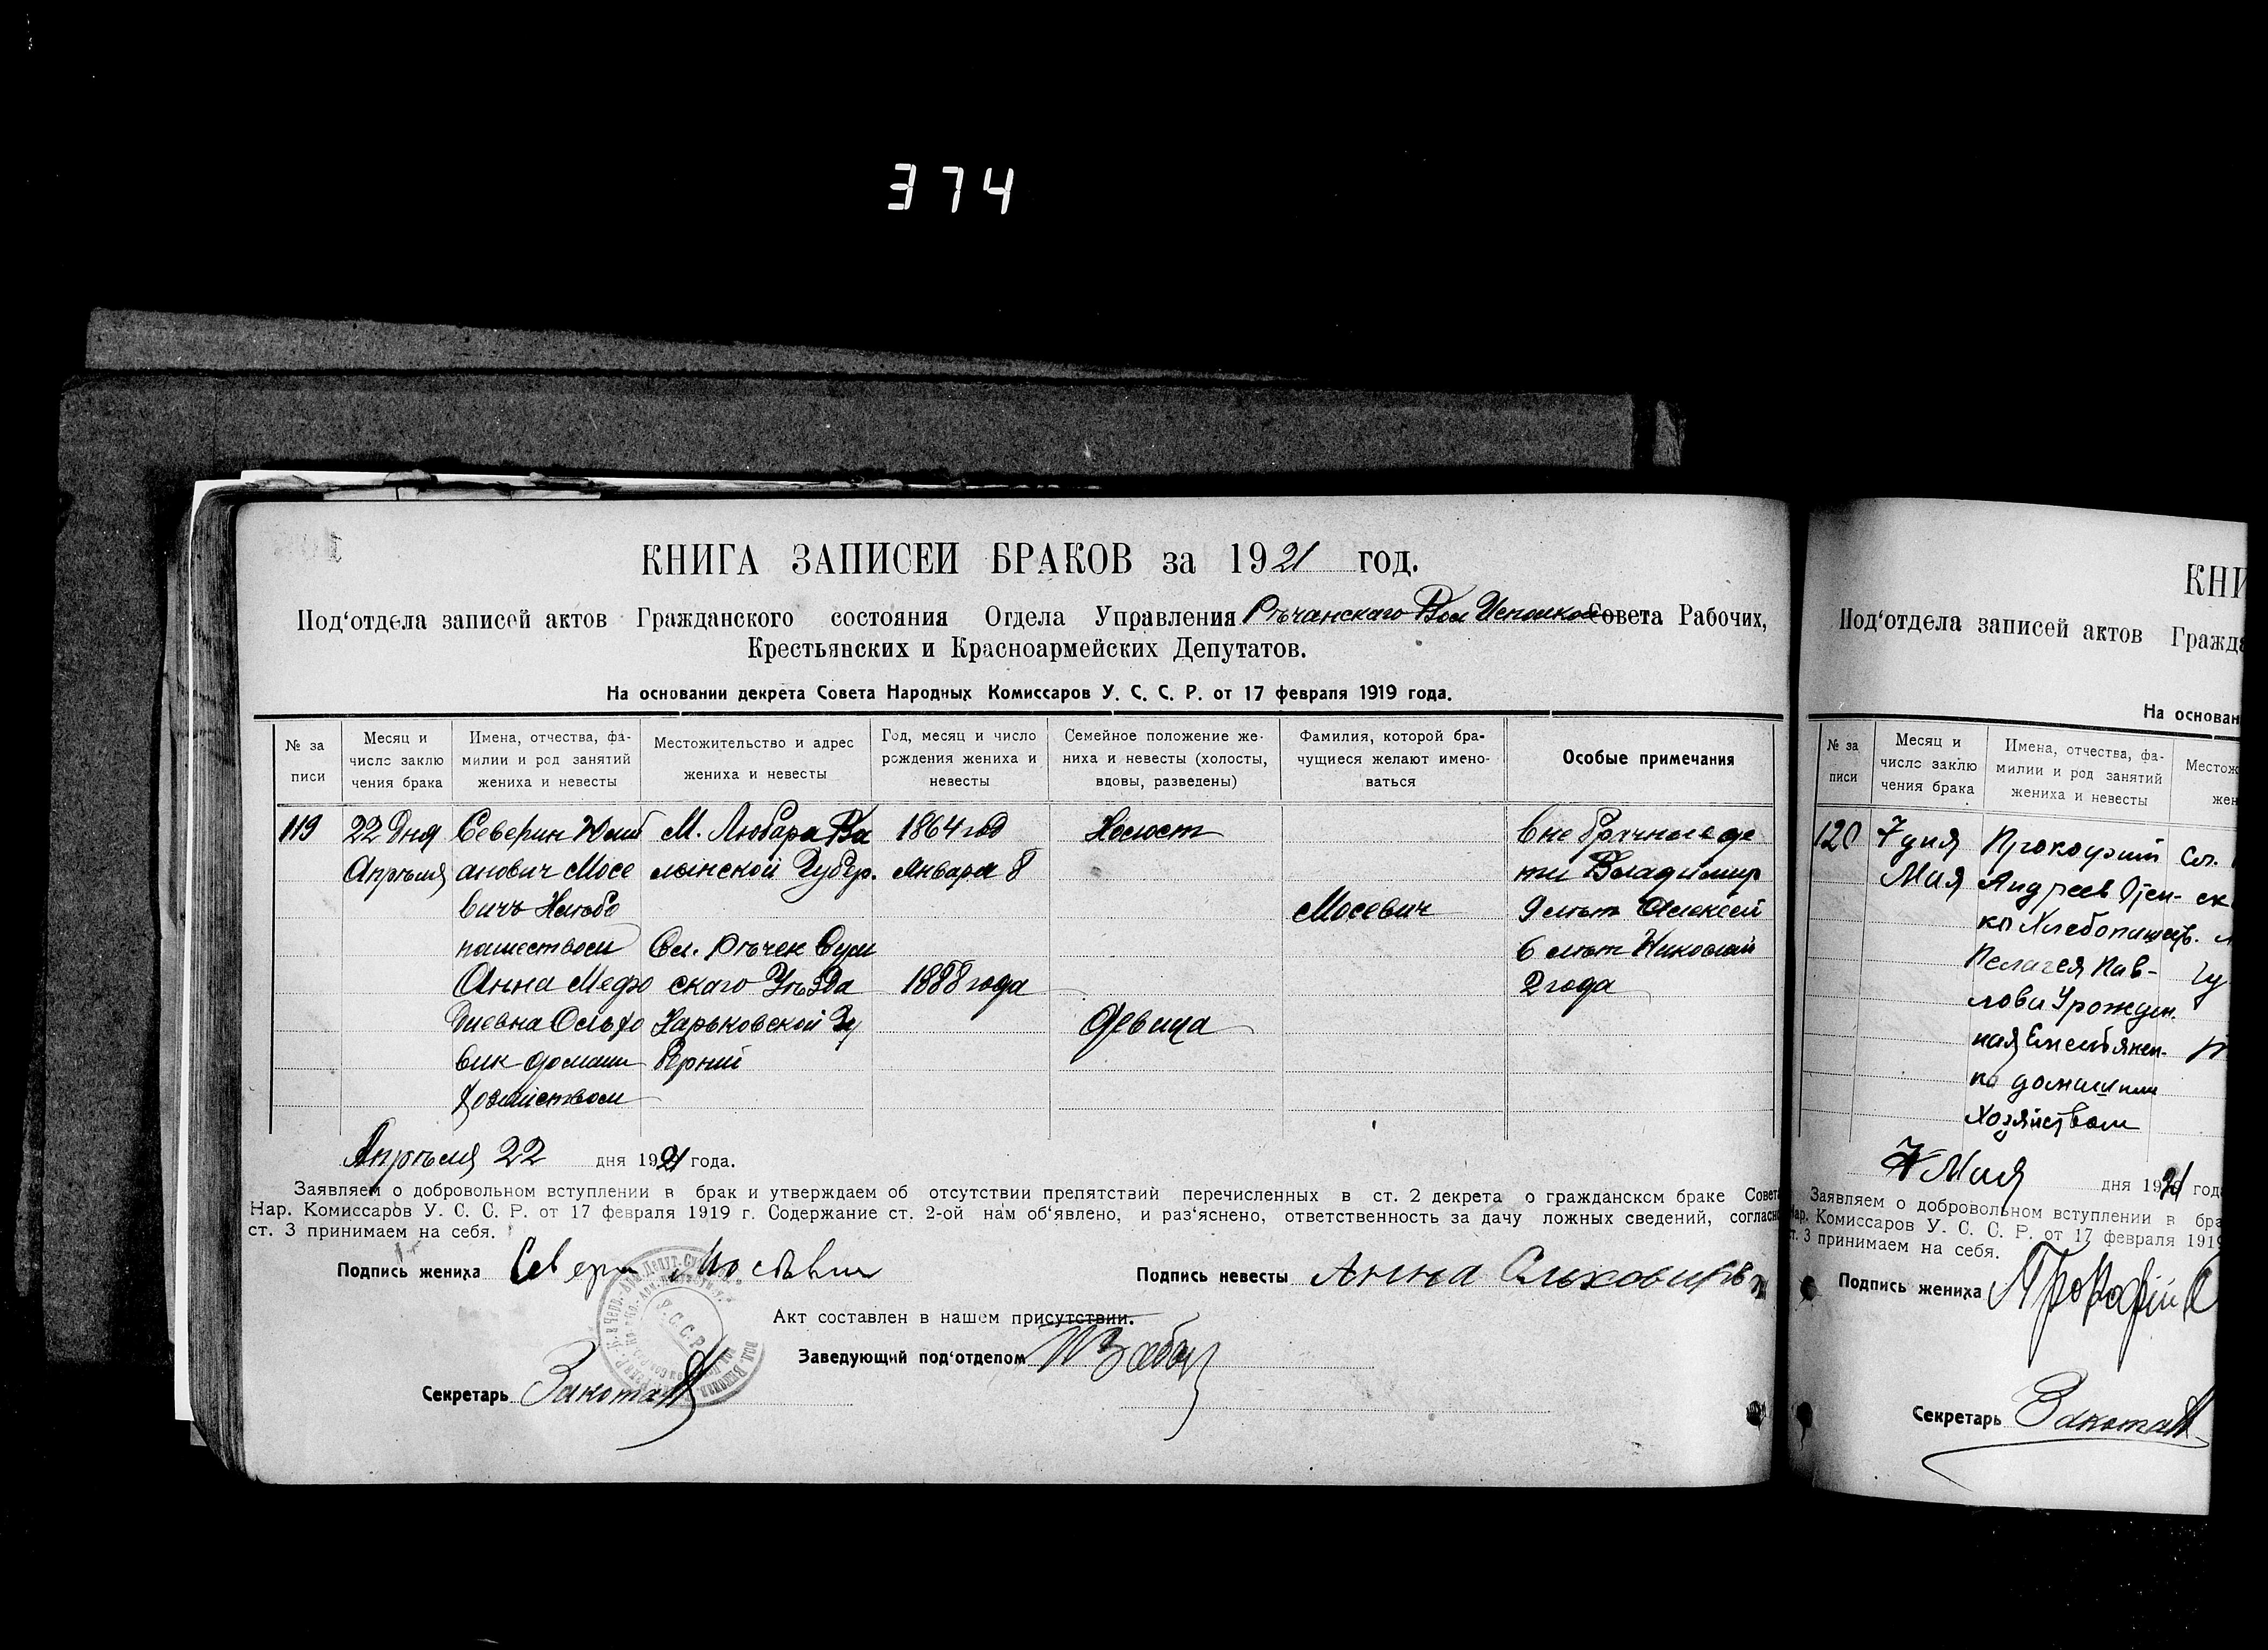 374
КНИГА ЗАПИСЕИ БРАКОВ за 1921 год.
Под‘отдела записей актов Гражданского состояния Отдела Управления Рѣчанскаго Вол Исполком Совета Рабочих,
Крестьянских и Красноармейских Депутатов.
На основании декрета Совета Народных Комиссаров У. С. С. Р. от 17 февраля 1919 года.
№ за
писи
Месяц и
число заклю
чения брака
Имена, отчества, фа-
милии и род занятий
жениха и невесты
Местожительство и адрес
жениха и невесты
Год, месяц и число
рождения жениха и
невесты
Семейное положение же-
ниха и невесты (холосты,
вдовы, разведены)
Фамилия, которой бра-
чущиеся желают имено-
ваться
Особые примечания
119
22 Дня
Апрѣля
Северин
анович Мосе
вичъ Хлѣбо
пашеством
Анна Мефо
диевна Ольхо
вик домаш
хозяйством
М. Любара Во
лынской Губер.
Сл. Рѣчек Сум
скаго Уѣзда
Харьковской Гу
берний
1864 год
Января 8
1888 года
Холост
Девица
Мосевич
Вне брачные де
ти Владимир
9 лѣт Алексей
6 лѣт Николай
2 года
Апрѣля 22 дня 1921 года.
Заявляем о добровольном вступлении в брак и утверждаем об отсутствии препятствий перечисленных в ст. 2 декрета о гражданском браке Совета
Нар. Комиссаров У. С. С. Р. от 17 февраля 1919 г. Содержание ст. 2-ой нам об‘явлено, и раз‘яснено, ответственность за дачу ложных сведений, согласно
ст. 3 принимаем на себя.
Подпись жениха Северин
Подпись невесты Анна
Акт составлен в нашем присутствии.
Заведующий под‘отделом
Секретарь
У. С. С. Р.
КНИ
Под‘отдела записей актов Гражда
На основан
№ за
писи
Месяц и
число заклю
чения брака
Имена, отчества, фа-
милии и род занятий
жениха и невесты
Местож
жен
120
7 дня
Мая
Прокофий
Андреев
ко Хлебопашец.
Пелагея Пав-
лова Урожден.
ная
ко домашним
Хозяйством
Сл.
ск
гу
7 Мая дня 1921 года
Заявляем о добровольном вступлении в бра
Нар. Комиссаров У. С. С. Р. от 17 февраля 1919
ст. 3 принимаем на себя.
Подпись жениха Прокофій
Секретарь